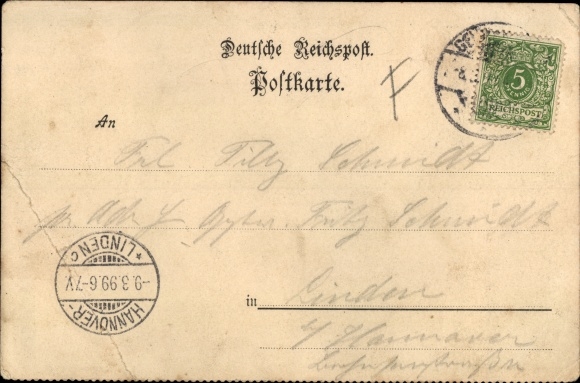 Deutsche Reichspost.
Postkarte.
5
REICHSPOST
An
Frl Tilly Schmidt
Fritz Schmidt
HANNOVER-
-9.3.99.6-7V.
* LINDEN c
in Linden
Hannover